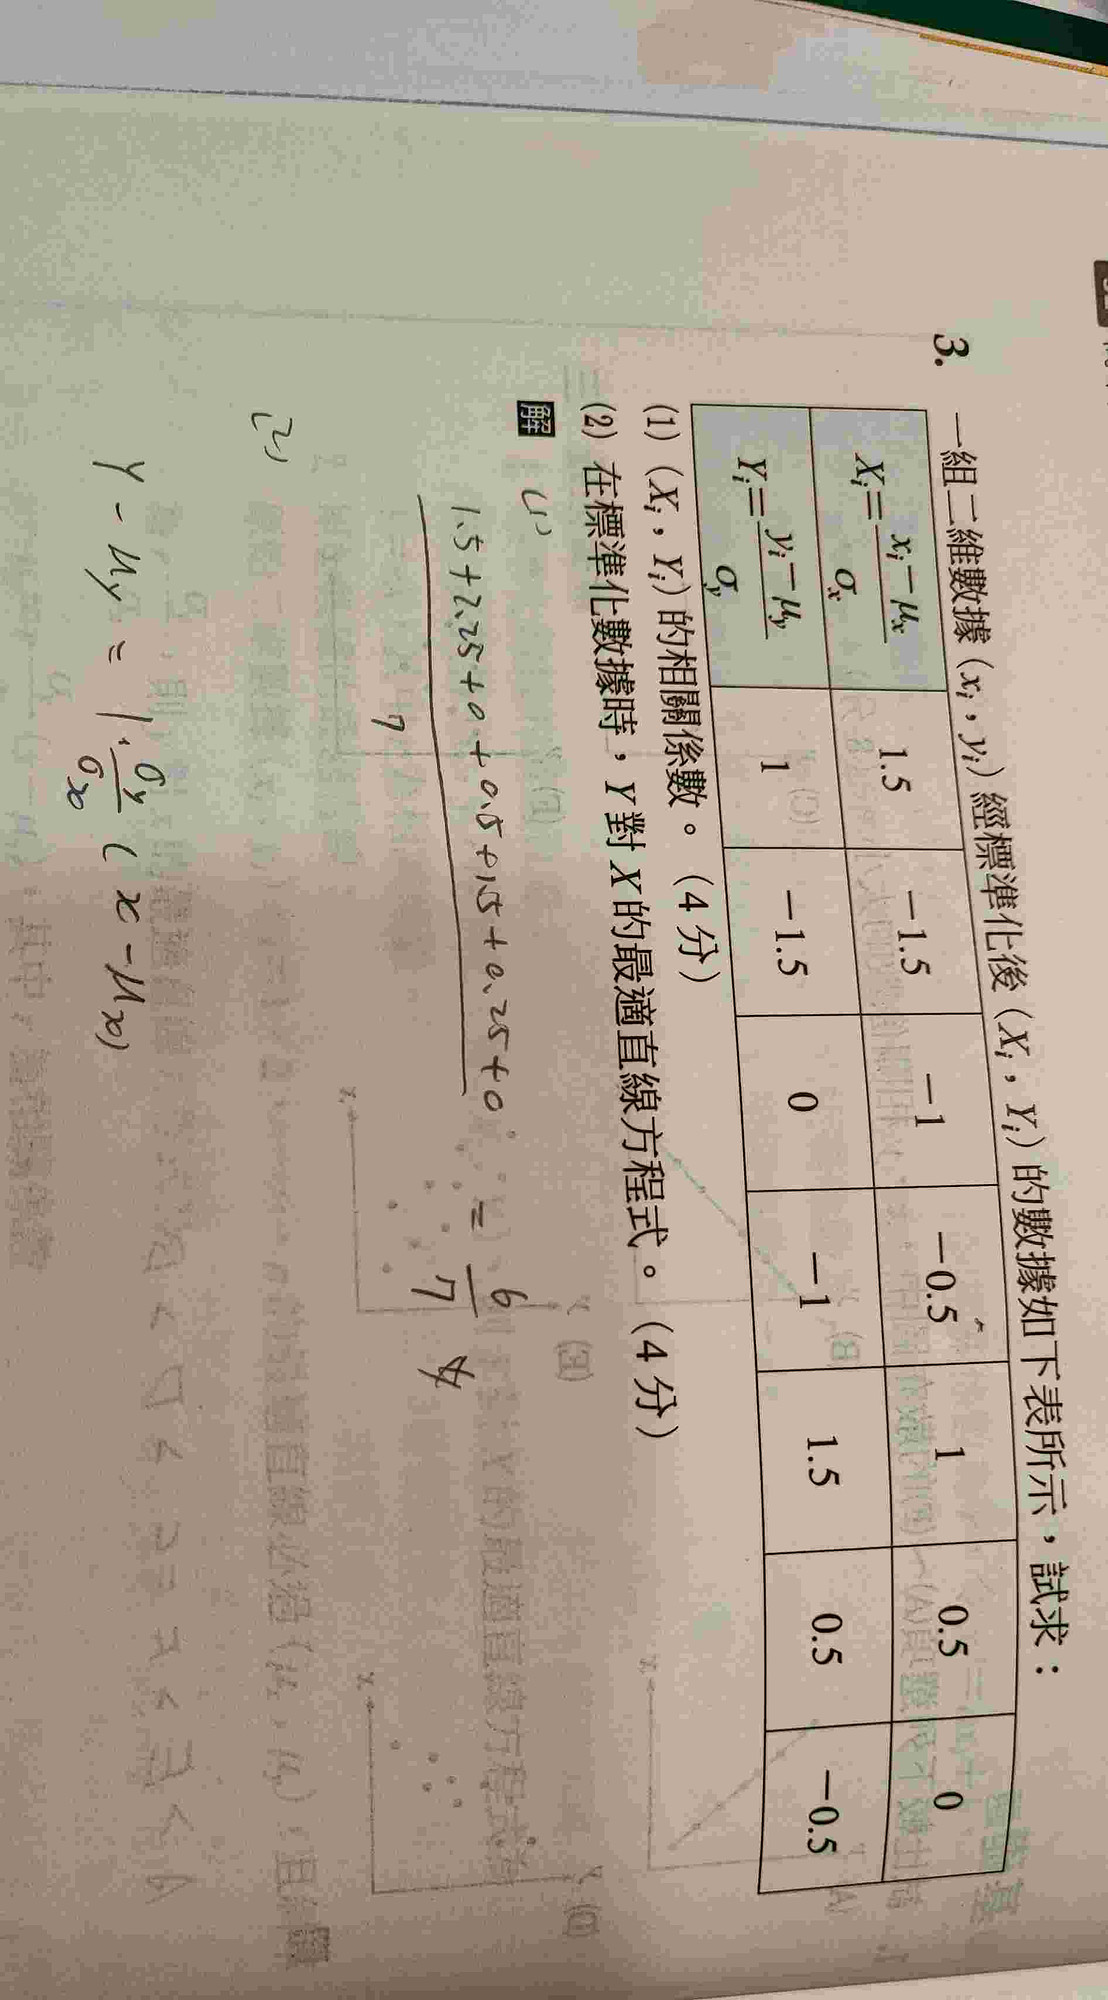 3. 一組二維數據(xᵢ,yᵢ)經標準化後(Xᵢ,Yᵢ)的數據如下表所示,試求:
Xᵢ=(xᵢ-μₓ)/σₓ 1.5 -1.5 -1 -0.5 1 0.5 0
Yᵢ=(yᵢ-μᵧ)/σᵧ 1 -1.5 0 -1 1.5 0.5 -0.5
(1) (Xᵢ,Yᵢ)的相關係數。(4分)
(2) 在標準化數據時,Y對X的最適直線方程式。(4分)
解 (1)
1.5+2.25+0+0.5+1.5+0.25+0 / 7 = 6/7 #
(2)
y-μy = 1·σy/σx (x-μx)